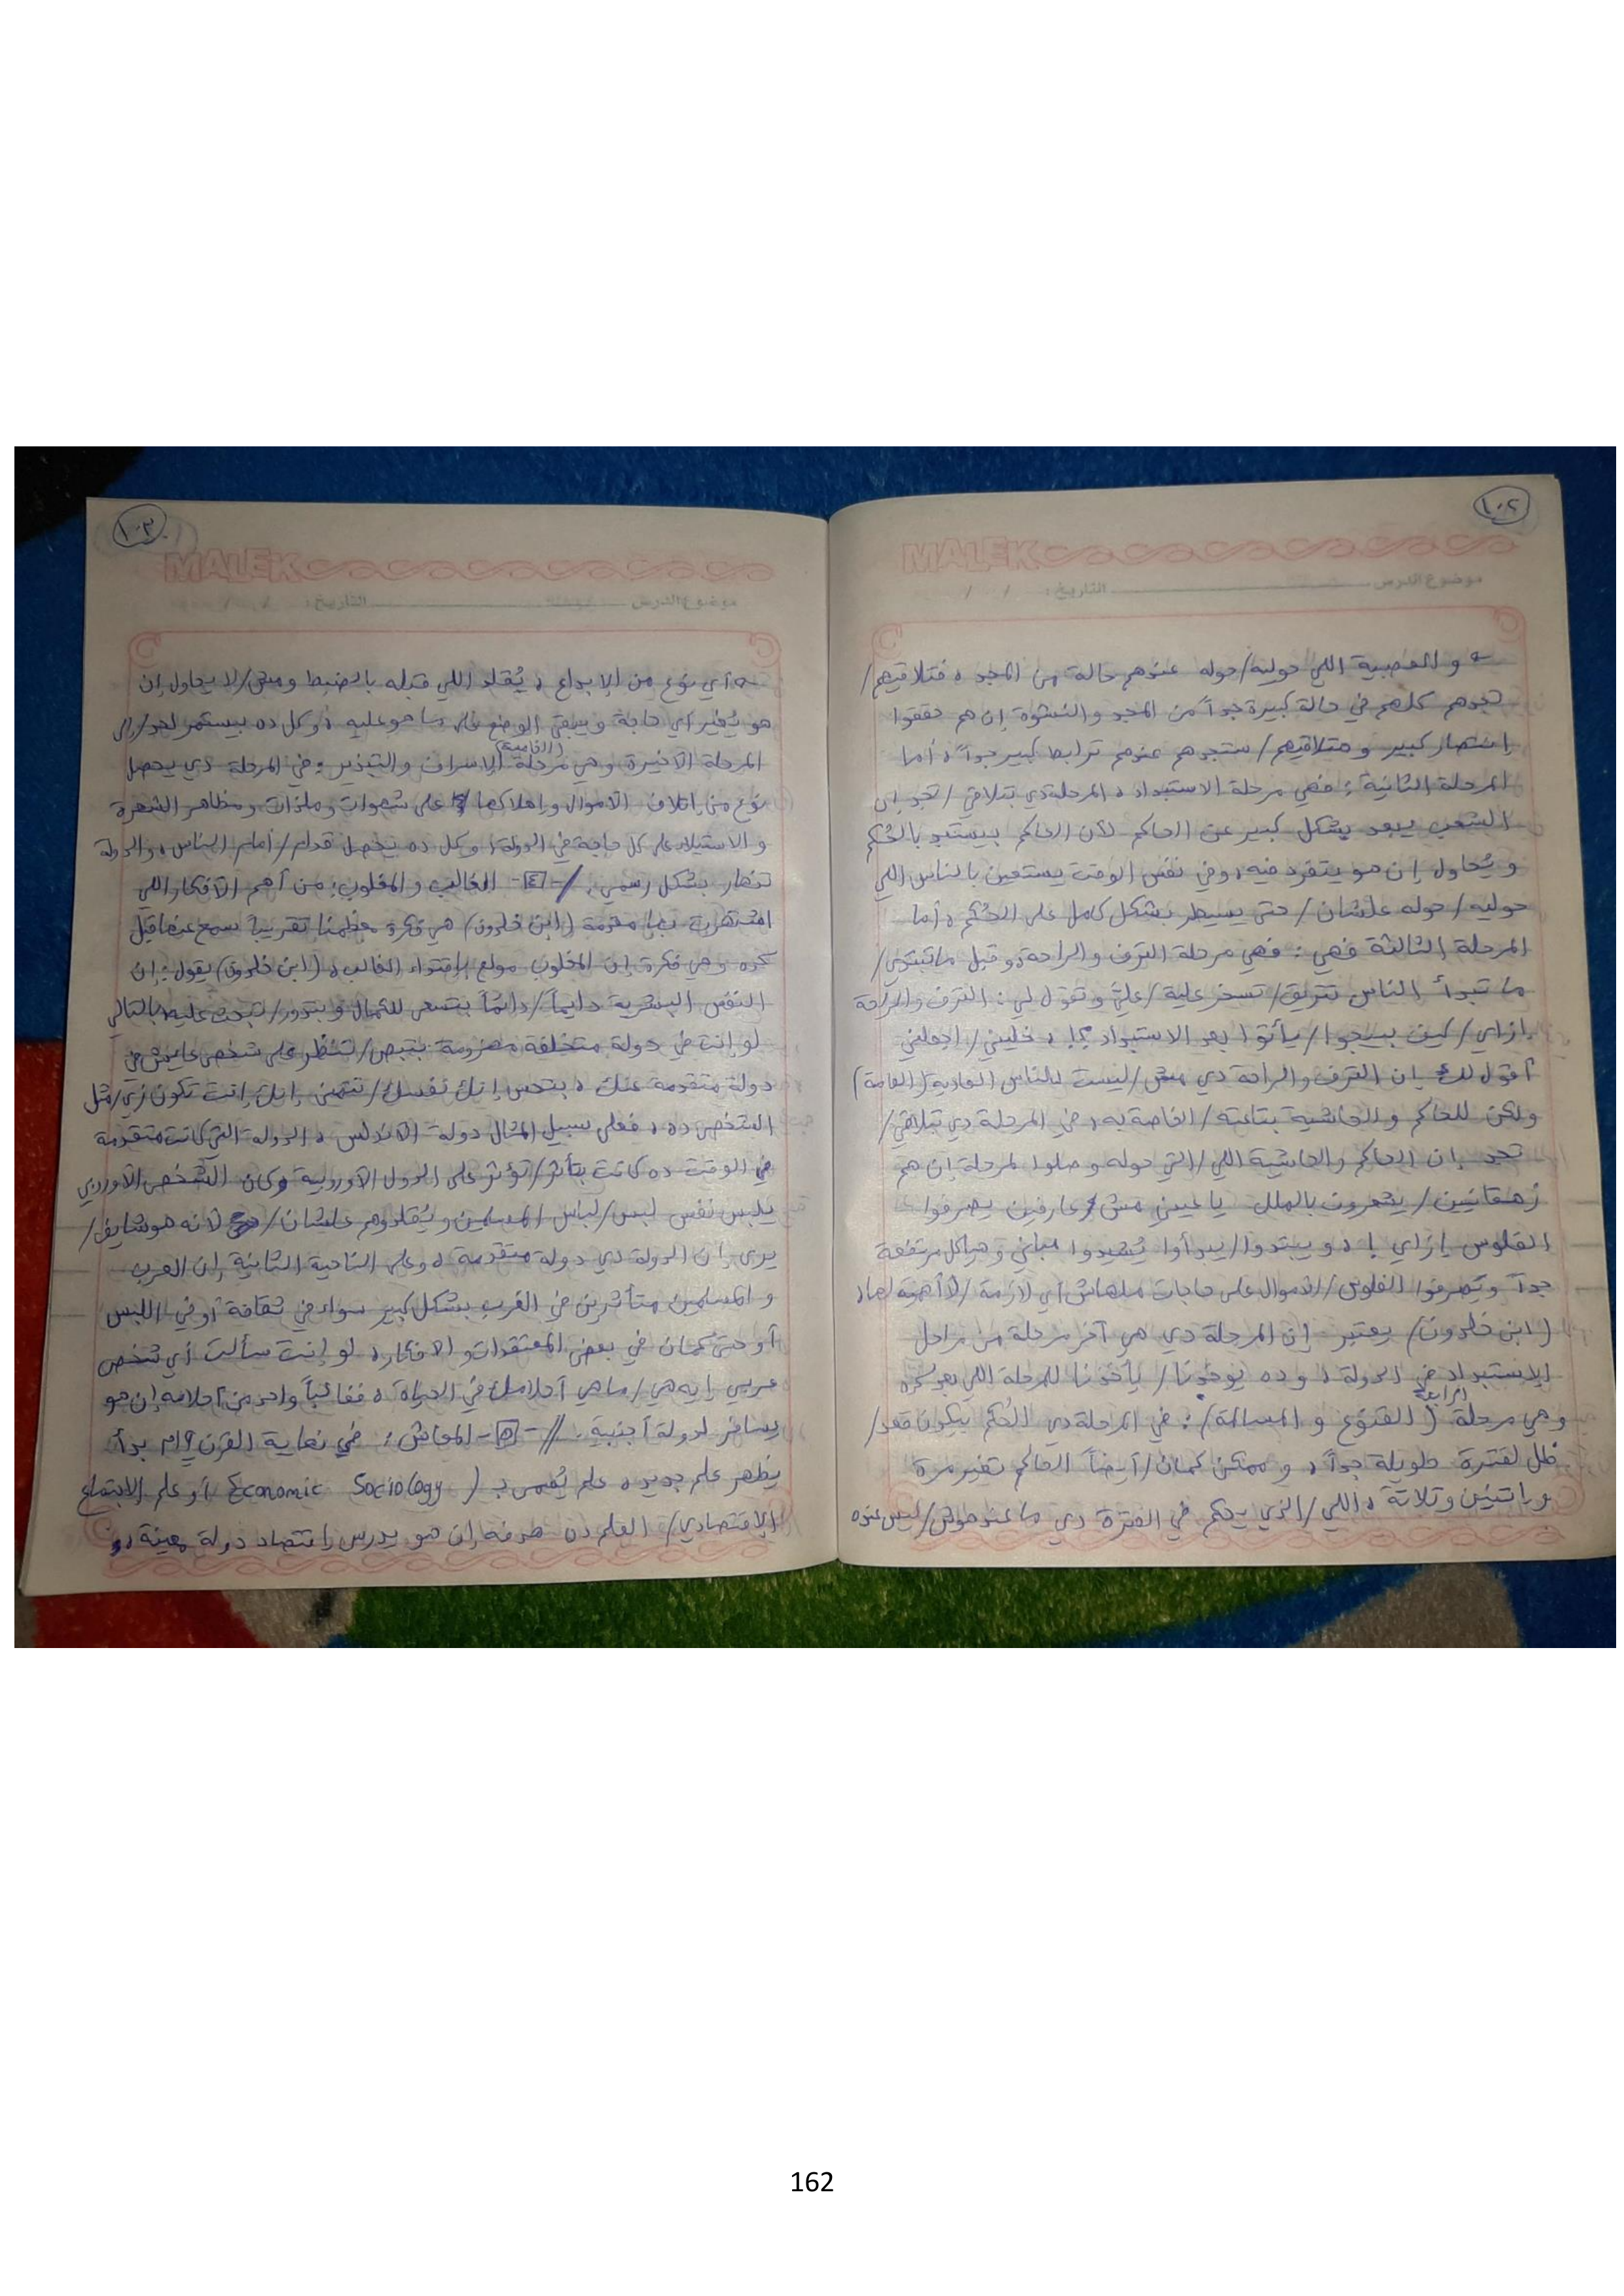 ١٠٢
MALEK
موضوع الدرس التاريخ : / /
و العصبية اللي حوليه/حوله عندهم حالة من المجد ، فتلاقيهم/
تجدهم كلهم في حالة كبيرة جداً من المجد والنشوة إن هم حققوا
إنتصار كبير و متلاقيهم/ستجدهم عندهم ترابط كبير جداً ، أما
المرحلة الثانية : فهي مرحلة الاستبداد ، المرحلة دي بتلاقي/تجد إن
الشعب يبعد بشكل كبير عن الحاكم لأن الحاكم بيستبد بالحُكم
و يُحاول إن هو يتفرد فيه ، وفي نفس الوقت يستعين بالناس اللي
حوليه/حوله علشان/حتى يسيطر بشكل كامل على الحُكم ، أما
المرحلة الثالثة فهي : فهي مرحلة الترف والراحة ، و قبل ما تبتدي/
ما تبدأ الناس تتريق/تسخر علية/عليَّ و تقول لي : الترف والراحة
إزاي/كيف بييجوا/يأتوا بعد الاستبداد ؟! ، خليني/اجعلني
أقول لك إن الترف والراحة دي مش/ليست للناس العادية (العامة)
ولكن للحاكم و الحاشية بتاعته/الخاصة به ، في المرحلة دي بتلاقي/
تجد إن الحاكم والحاشية اللي/التي حوله و صلوا لمرحلة إن هم
زهقانين/يشعرون بالملل يا عيني مش عارفين يصرفوا
الفلوس إزاي ! ، و يبتدوا/يبدأوا يُشيدوا مباني وهياكل مرتفعة
جداً و يصرفوا الفلوس/الأموال على حاجات ملهاش أي لازمة/لا أهمية لها ،
(ابن خلدون) يعتبر إن المرحلة دي هي آخر مرحلة من مراحل
الإستبداد في الدولة ، و ده يوخدنا/يأخذنا للمرحلة اللي بعد كده
الرابعة
و هي مرحلة (القنوع و المسالمة) : في المرحلة دي الحُكم بيكون قعد/
ظل لفترة طويلة جداً ، و ممكن كمان/أيضاً الحاكم تغير مرة
و إتنين و تلاتة ، اللي/الذي يحكم في الفترة دي ما عندهوش/ليس عنده
١٠٣
MALEK
موضوع الدرس التاريخ : / /
أي نوع من الإبداع ، يُقلد اللي قبله بالضبط و مش/لا يحاول إن
هو يُغير أي حاجة و يبقى الوضع على ما هو عليه ، و كل ده بيستمر لحد/إلى
(الخامسة)
المرحلة الأخيرة وهي مرحلة الإسراف والتبذير : في المرحلة دي يحصل
نوع من إتلاف الأموال و إهلاكها على شهوات و ملذات و مظاهر الشهرة
و الاستيلاء على كل حاجة في الدولة ، و كل ده يحصل قدام/أمام الناس ، والدولة
تنهار بشكل رسمي . /-٤- الغالب و المغلوب : من أهم الأفكار اللي
اشتهرت بها مقدمة (ابن خلدون) هي فكرة معظمنا تقريباً سمع عنها قبل
كده و هي فكرة إن المغلوب مولع بإقتداء الغالب ، (ابن خلدون) يقول : إن
النفس البشرية دايماً/دائماً بتسعى للكمال و بتدور/تبحث عليه ، بالتالي
لو إنت في دولة متخلفة مهزومة بتبص/تنظر على شخص عايش في
دولة متقدمة عنك ، بتحس إنك نفسك/تتمنى إنك إنت تكون زي/مثل
الشخص ده ، فعلى سبيل المثال دولة الأندلس ، الدولة التي كانت متقدمة
في الوقت ده كانت بتأثر/تؤثر على الدول الأوروبية و كان الشخص الأوروبي
يلبس نفس لبس/لباس المسلمين و يُقلدوهم علشان/ لأنه هو شايف/
يرى إن الدولة دي دولة متقدمة ، و على الناحية الثانية إن العرب
و المسلمين متأثرين في الغرب بشكل كبير سواء في ثقافة أو في اللبس
أو حتى كمان في بعض المعتقدات و الأفكار ، لو إنت سألت أي شخص
عربي إيه هي/ما هي أحلامك في الحياة ، فغالباً واحد من أحلامه إن هو
يسافر لدولة أجنبية . //-٥- المعاش : في نهاية القرن ١٩م بدأ
يظهر علم جديد ، علم يُسمى بـ (Economic Sociology أو علم الاجتماع
الإقتصادي/ العلم ده هدفه إن هو يدرس إقتصاد دولة معينة ، و
162